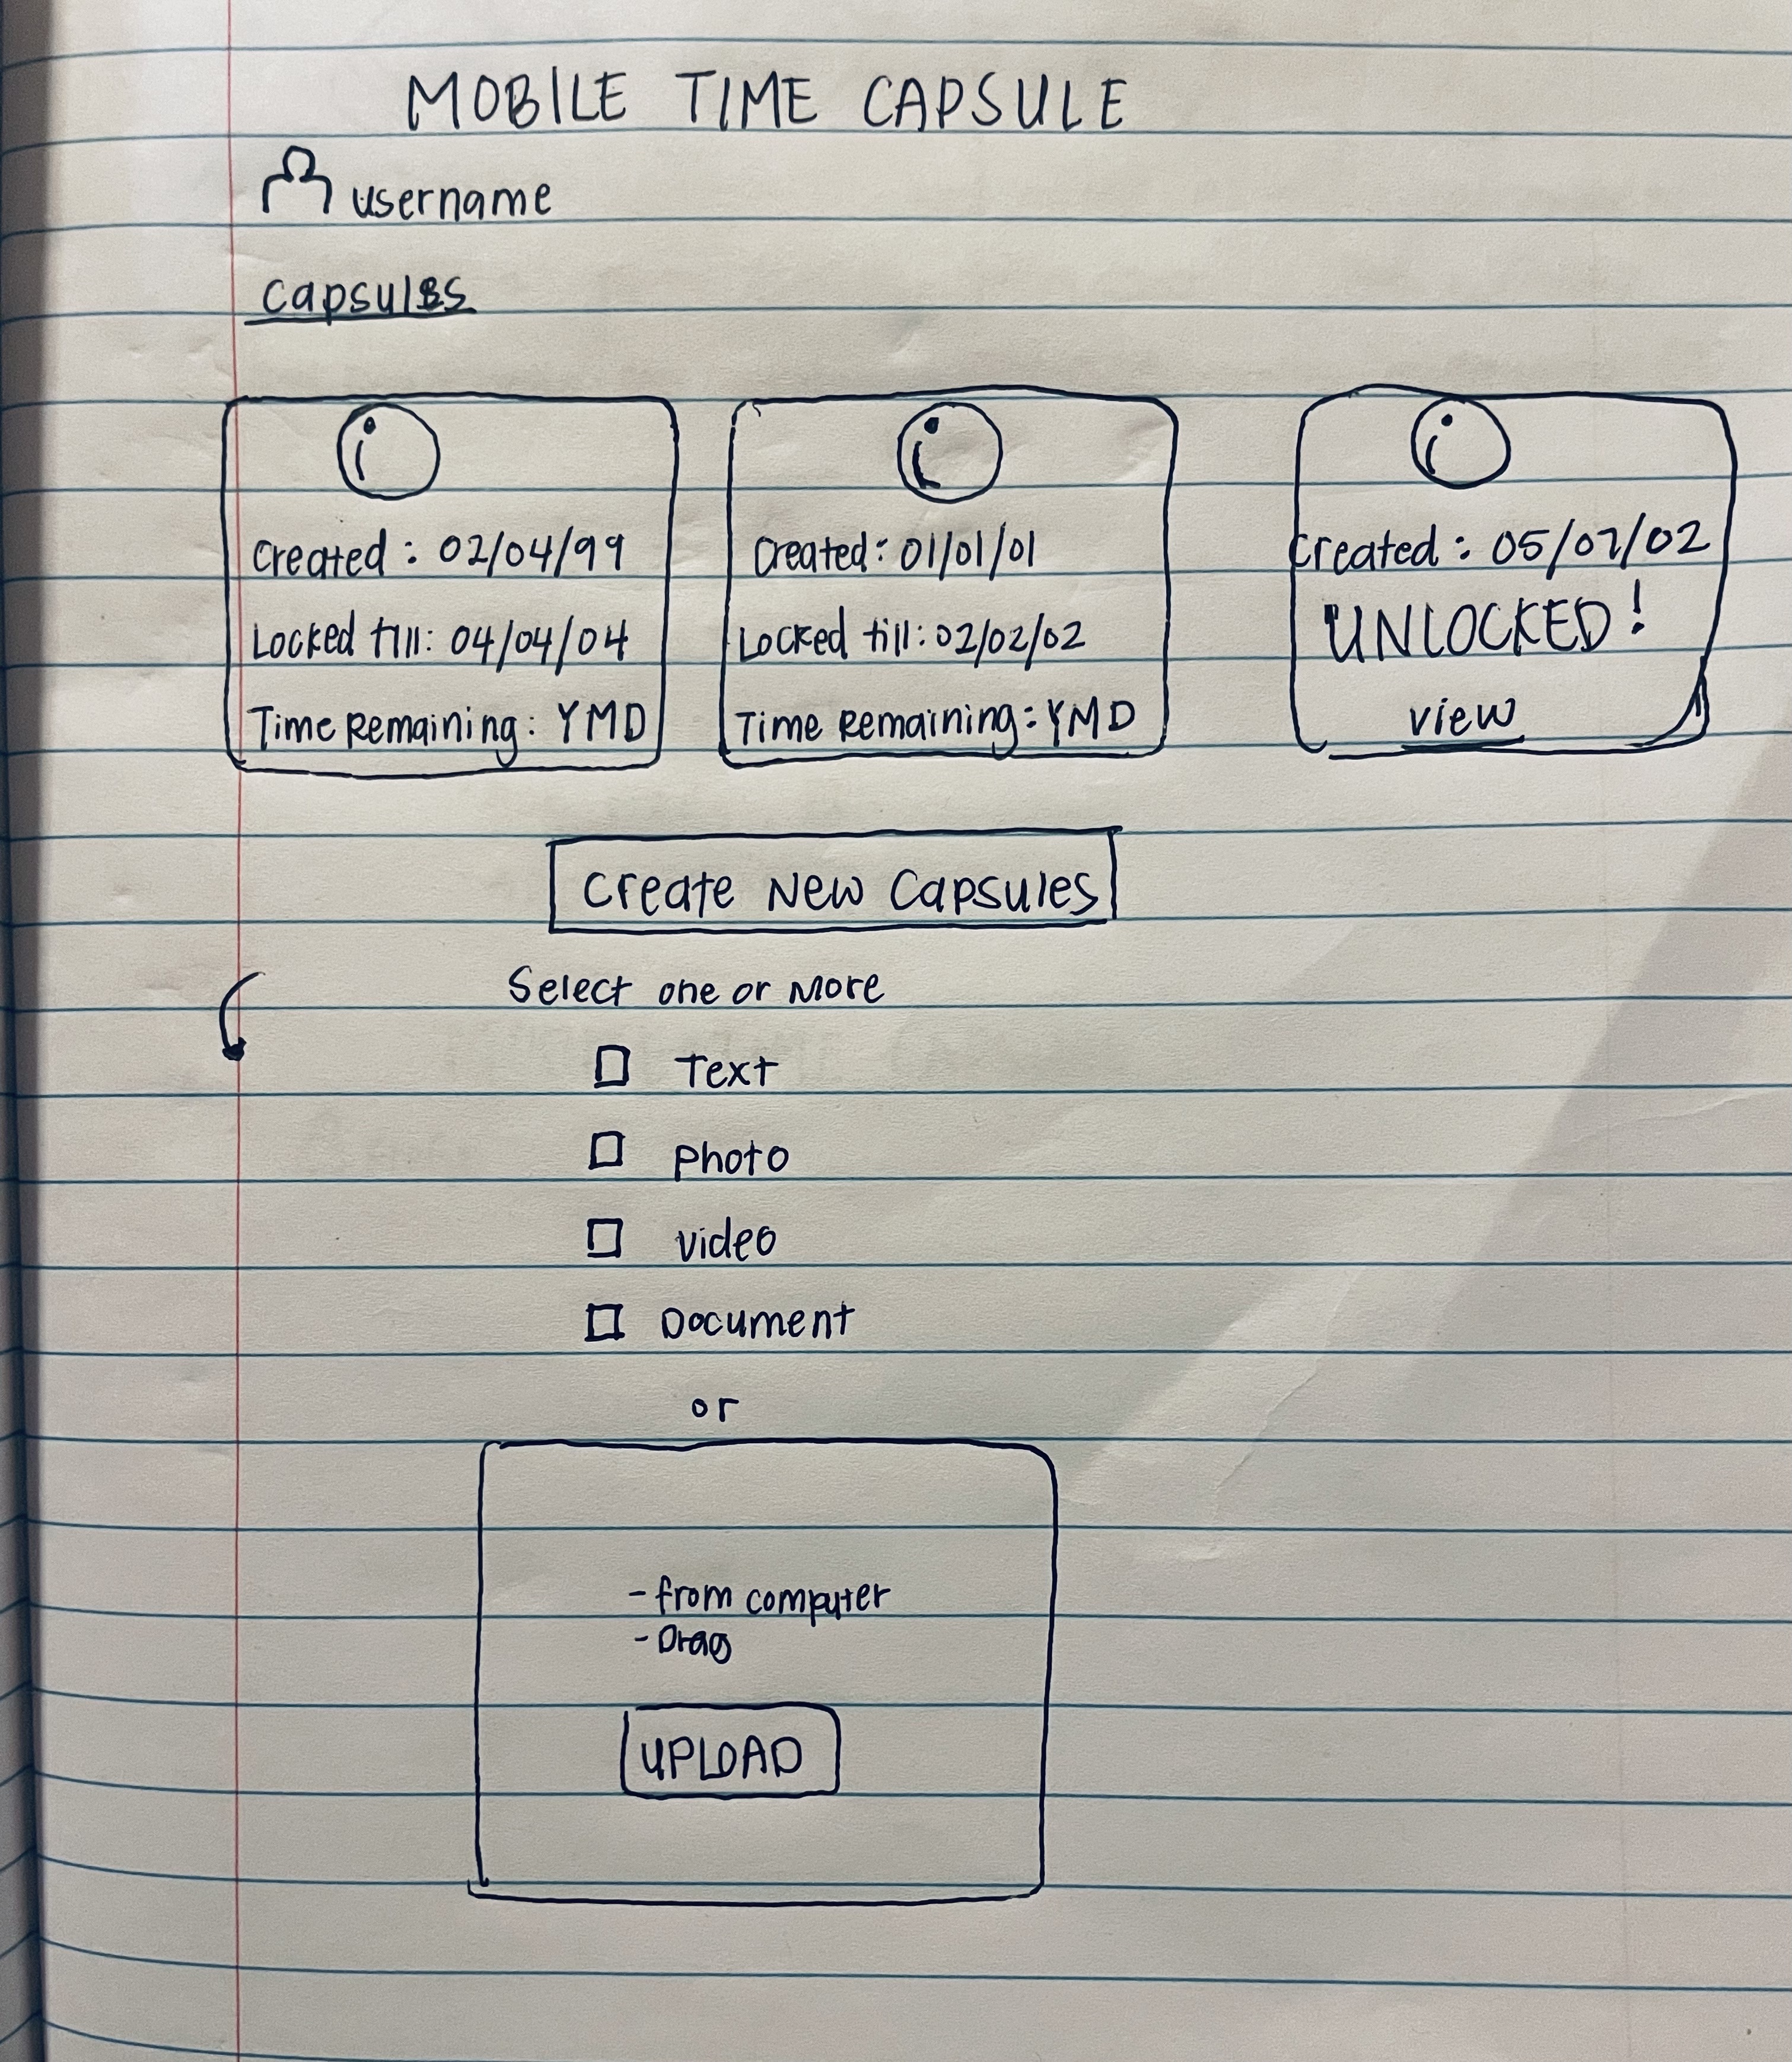 MOBILE TIME CAPSULE
username
Capsules
Created : 02/04/99
Locked till: 04/04/04
Time Remaining: YMD
Created: 01/01/01
Locked till: 02/02/02
Time Remaining: YMD
Created : 05/07/02
UNLOCKED!
view
Create New Capsules
Select one or more
Text
Photo
video
Document
or
- from computer
- Drag
UPLOAD